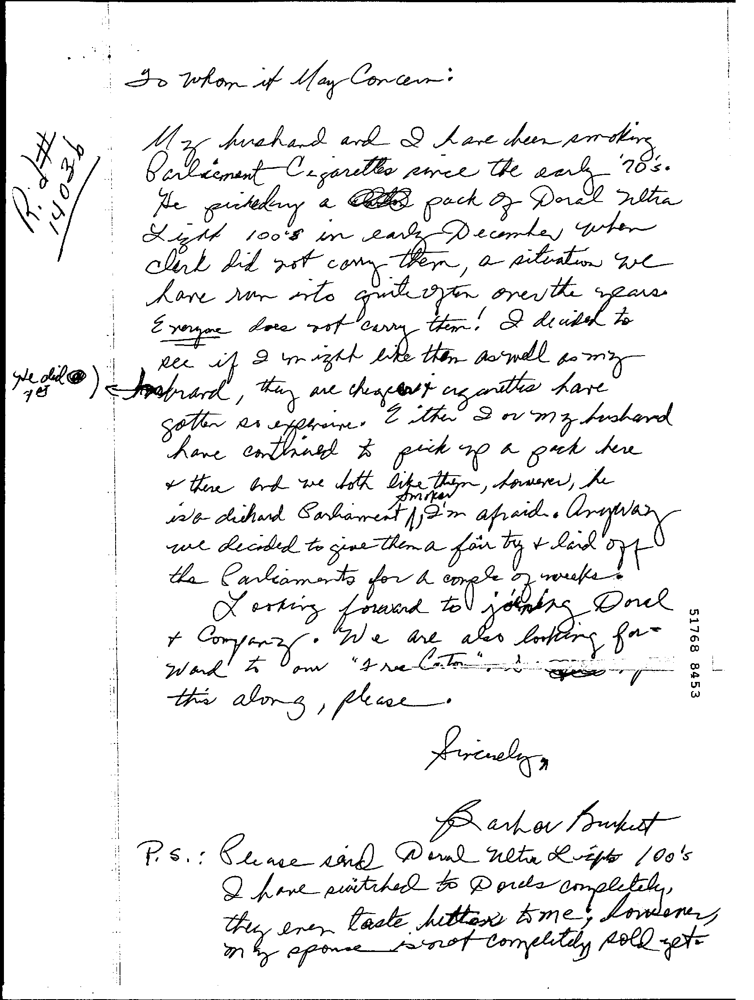 To Whom it May Concern:
R. d#
14036
My husband and I have been smoking
Parliament Cigarettes since the early '70's.
He picked up a pack of Doral Ultra
Light 100's in early December when
clerk did not carry them, a situation we
have run into quite often over the years.
Everyone does not carry them! I decided to
see if I might like them as well as my
He did
yes
husband, they are cheaper & cigarettes have
gotten so expensive. Either I or my husband
have continued to pick up a pack here
& there and we both like them, however, he
is a diehard Parliament smoker, I'm afraid. Anyway
we decided to give them a fair try & laid off
the Parliaments for a couple of weeks.
Looking forward to joining Doral
& Company. We are also looking for-
ward to our "Free Carton".
this along, please.
51768 8453
Sincerely,
Burkett
P.S.: Please send Doral Ultra Lights 100's
I have switched to Dorals completely,
they even taste better to me; however,
my spouse is not completely sold yet.